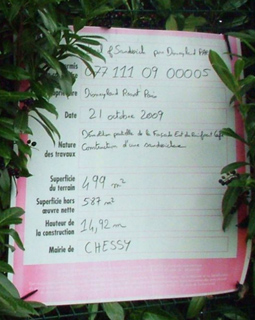 077 111 09 00005
Disneyland Resort Paris
Date 21 octobre 2009
Nature
des travaux
Démolition partielle de la Façade Est du Rainforest Café
Construction d'une
Superficie
du terrain 499 m²
Superficie hors
œuvre nette 587 m²
Hauteur de
la construction 14,92 m
Mairie de CHESSY